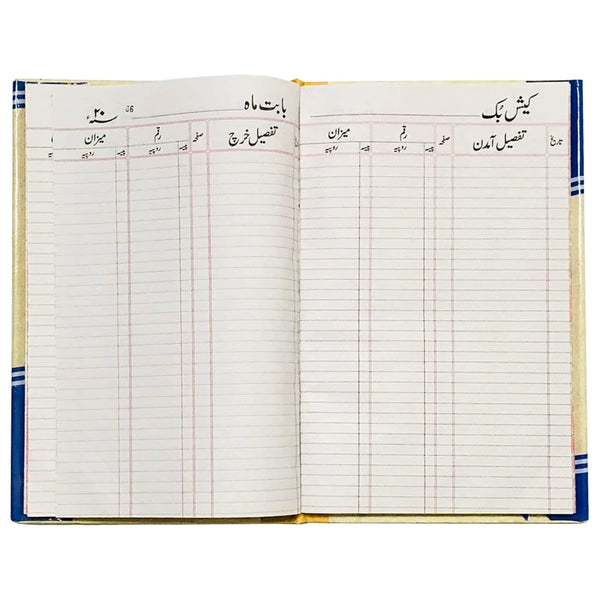 کیش بُک
تاریخ تفصیل آمدن صفحہ رقم میزان
پیسہ روپیہ پیسہ روپیہ
بابت ماہ ۲۰ سنہء
86
تفصیل خرچ صفحہ رقم میزان
پیسہ روپیہ پیسہ روپیہ